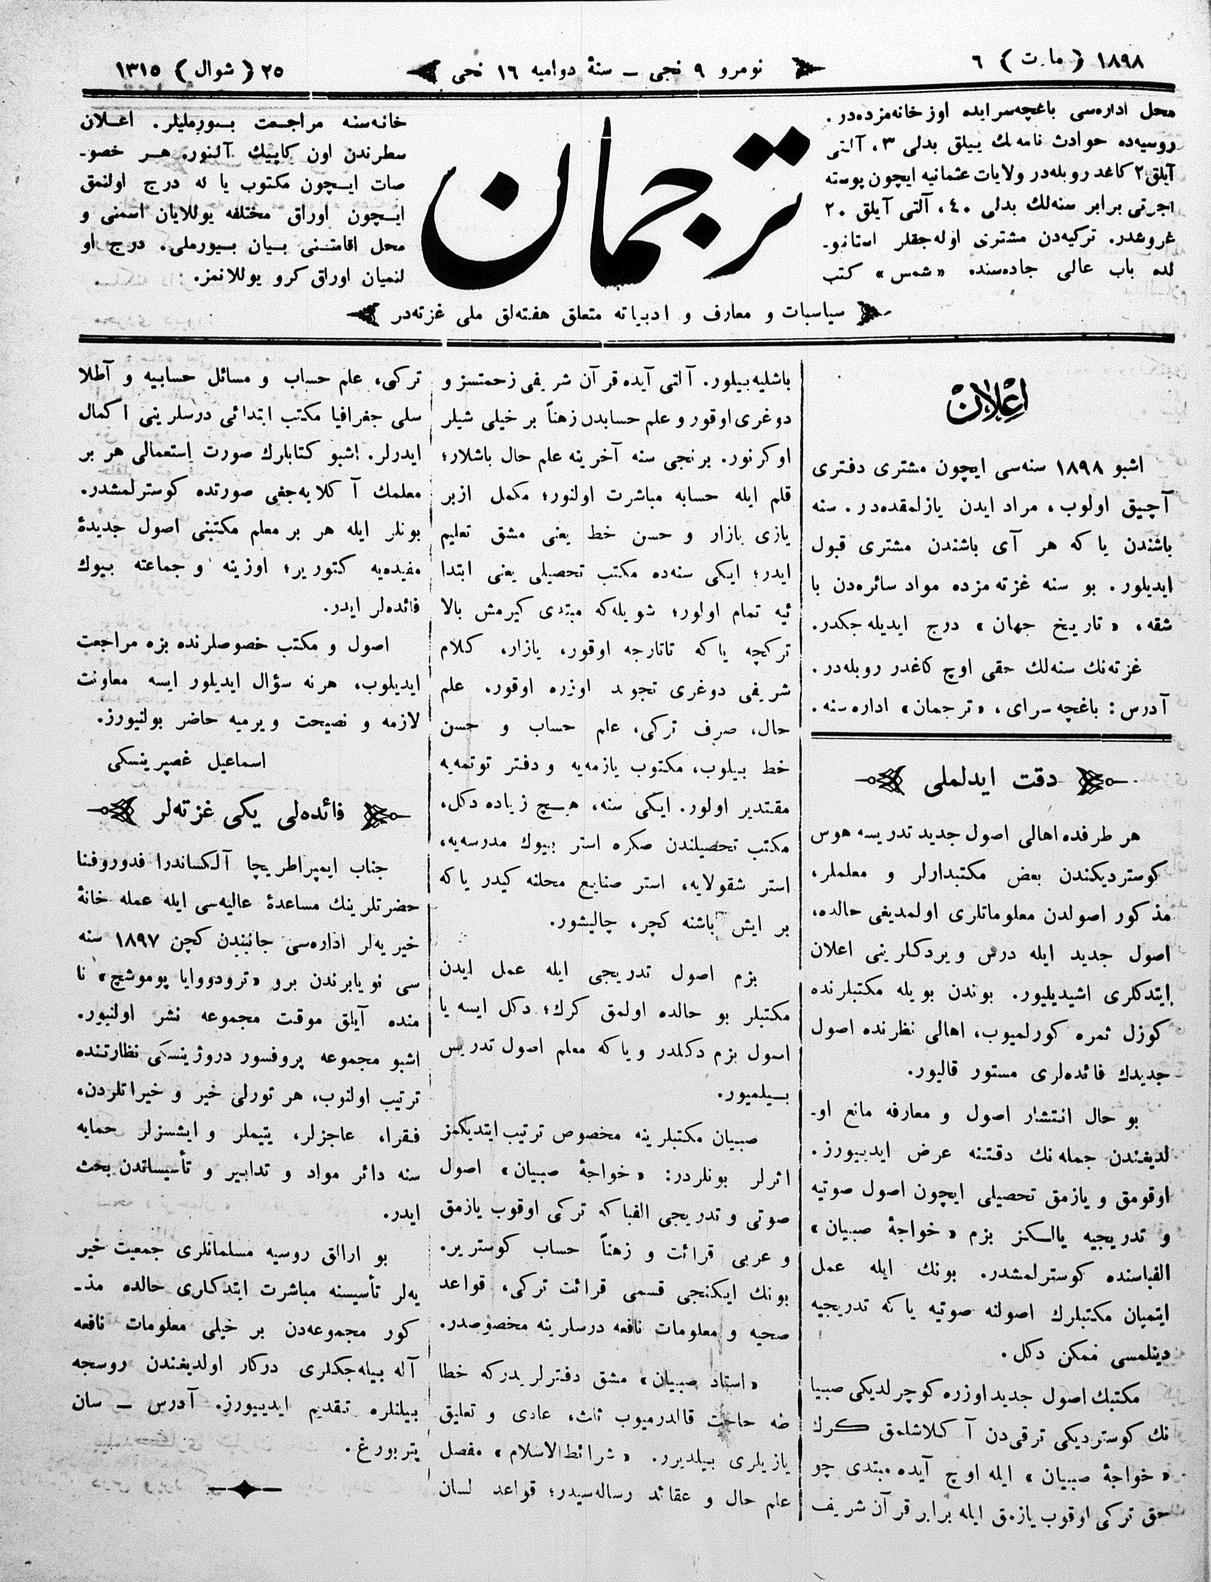 ١٨٩٨ ( مارت ) ٦
نومرو ٩ نجى – سنهٔ دواميه ١٦ نجى
٢٥ ( شوال ) ١٣١٥
محل اداره‌سى باغچه‌سرايده اوز خانه‌مزده‌در.
روسيه‌ده حوادث نامه‌نك ييللق بدلى ٣، آلتى
آيلق ٢ كاغد روبله‌در ولايات عثمانيه ايچون پوسته
اجرتى برابر سنه‌لك بدلى ٤٠، آلتى آيلق ٢٠
غروشدر. تركيه‌دن مشترى اوله‌جقلر استانبو-
لده باب عالى جاده‌سنده «شمس» كتب
ترجمان
خانه‌سنه مراجعت بيورمليلر. اعلان
سطرندن اون كاپيك آلنور. هر خصو-
صات ايچون مكتوب يا له درج اولنمق
ايچون اوراق مختلفه يوللايان اسمنى و
محل اقامتنى بيان بيورملى. درج او
لنميان اوراق كرو يوللانمز.
سياسيات و معارف و ادبياته متعلق هفته‌لق ملى غزته‌در
اعلان
اشبو ١٨٩٨ سنه‌سى ايچون مشترى دفترى
آچيق اولوب، مراد ايدن يازلمقده‌در. سنه
باشندن ياكه هر آى باشندن مشترى قبول
ايديلور. بو سنه غزته‌مزده مواد سائره‌دن با
شقه، «تاريخ جهان» درج ايديله‌جكدر.
غزته‌نك سنه‌لك حقى اوچ كاغدر روبله‌در.
آدرس: باغچه‌سراى، «ترجمان» اداره‌سنه.
دقت ايدلملى
هر طرفده اهالى اصول جديد تدريسه هوس
كوسترديكندن بعض مكتبدارلر و معلملر،
مذكور اصولدن معلوماتلرى اولمديغى حالده،
اصول جديد ايله درس ويردكلرينى اعلان
ايتدكلرى اشيديليور. بوندن بويله مكتبلرنده
كوزل ثمره كورلميوب، اهالى نظرنده اصول
جديدك فائده‌لرى مستور قاليور.
بو حال انتشار اصول و معارفه مانع او-
لديغندن جمله‌نك دقتنه عرض ايدييورز.
اوقومق و يازمق تحصيلى ايچون اصول صوتيه
و تدريجيه يالكز بزم «خواجهٔ صبيان»
الفباسنده كوسترلمشدر. بونك ايله عمل
ايتميان مكتبلرك اصولنه صوتيه ياكه تدريجيه
دينلمسى ممكن دكل.
مكتبك اصول جديد اوزره كوچرلديكى صبيا
نك كوسترديكى ترقى‌دن آكلاشلمق كرك
«خواجهٔ صبيان» ايله اوچ آيده مبتدى چو
جق تركى اوقوب يازمق ايله برابر قرآن شريف
باشليه‌بيلور. آلتى آيده قرآن شريفى زحمتسز و
دوغرى اوقور و علم حسابدن زهناً بر خيلى شيلر
اوكرنور. برنجى سنه آخرينه علم حال باشلار؛
قلم ايله حسابه مباشرت اولنور؛ مكمل ازبر
يازى يازار و حسن خط يعنى مشق تعليم
ايدر؛ ايكى سنه‌ده مكتب تحصيلى يعنى ابتدا
ئيه تمام اولور؛ شويله‌كه مبتدى كيرمش بالا
تركچه ياكه تاتارجه اوقور، يازار، كلام
شريفى دوغرى تجويد اوزره اوقور. علم
حال، صرف تركى، علم حساب و حسن
خط بيلوب، مكتوب يازمه‌يه و دفتر توتمه‌يه
مقتدير اولور. ايكى سنه، هيچ زياده دكل،
مكتب تحصيلندن صكره استر بيوك مدرسه‌يه،
استر شقولايه، استر صنايع محلنه كيدر ياكه
بر ايش باشنه كچر، چاليشور.
بزم اصول تدريجى ايله عمل ايدن
مكتبلر بو حالده اولمق كرك؛ دكل ايسه يا
اصول بزم دكلمدر و ياكه معلم اصول تدريس
بيلميور.
صبيان مكتبلرينه مخصوص ترتيب ايتديكمز
اثرلر بونلردر: «خواجهٔ صبيان» اصول
صوتى و تدريجى الفباكه تركى اوقوب يازمق
و عربى قرائت و زهناً حساب كوسترير.
بونك ايكنجى قسمى قرائت تركى، قواعد
صحيه و معلومات نافعه درسلرينه مخصوصدر.
«استاد صبيان» مشق دفترلريدركه خطا
طه حاجت قالدرميوب ثلث، عادى و تعليق
يازيلرى بيلديرر. «شرائط الاسلام» مفصل
علم حال و عقائد رساله‌سيدر؛ قواعد لسان
تركى، علم حساب و مسائل حسابيه و آطلا
سلى جغرافيا مكتب ابتدائى درسلرينى اكمال
ايدرلر. اشبو كتابلرك صورت استعمالى هر بر
معلمك آكلايه‌جغى صورتده كوسترلمشدر.
بونلر ايله هر بر معلم مكتبنى اصول جديدهٔ
مفيده‌يه كتورير؛ اوزينه و جماعته بيوك
فائده‌لر ايدر.
اصول و مكتب خصوصلرنده بزه مراجعت
ايديلوب، هرنه سؤال ايديلور ايسه معاونت
لازمه و نصيحت ويرميه حاضر بولنيورز.
اسماعيل غصپرينسكى
فائده‌لى يكى غزته‌لر
جناب ايمپراطريچا آلكساندرا فدوروفنا
حضرتلرينك مساعدهٔ عاليه‌سى ايله عمله خانهٔ
خيريه‌لر اداره‌سى جانبندن كچن ١٨٩٧ سنه
سى نويابرندن برو «ترودووايا پوموشچ» نا
منده آيلق موقت مجموعه نشر اولنيور.
اشبو مجموعه پروفسور دروژينسكى نظارتنده
ترتيب اولنوب، هر تورلى خير و خيراتلردن،
فقرا، عاجزلر، يتيملر و ايشسزلر حمايه
سنه دائر مواد و تدابير و تأسيساتدن بحث
ايدر.
بو ارالق روسيه مسلمانلرى جمعيت خير
يه‌لر تأسيسنه مباشرت ايتدكلرى حالده مذ-
كور مجموعه‌دن بر خيلى معلومات نافعه
آله بيله‌جكلرى دركار اولديغندن روسجه
بيلنلره تقديم ايدييورز. آدرس – سان
پتربورغ.